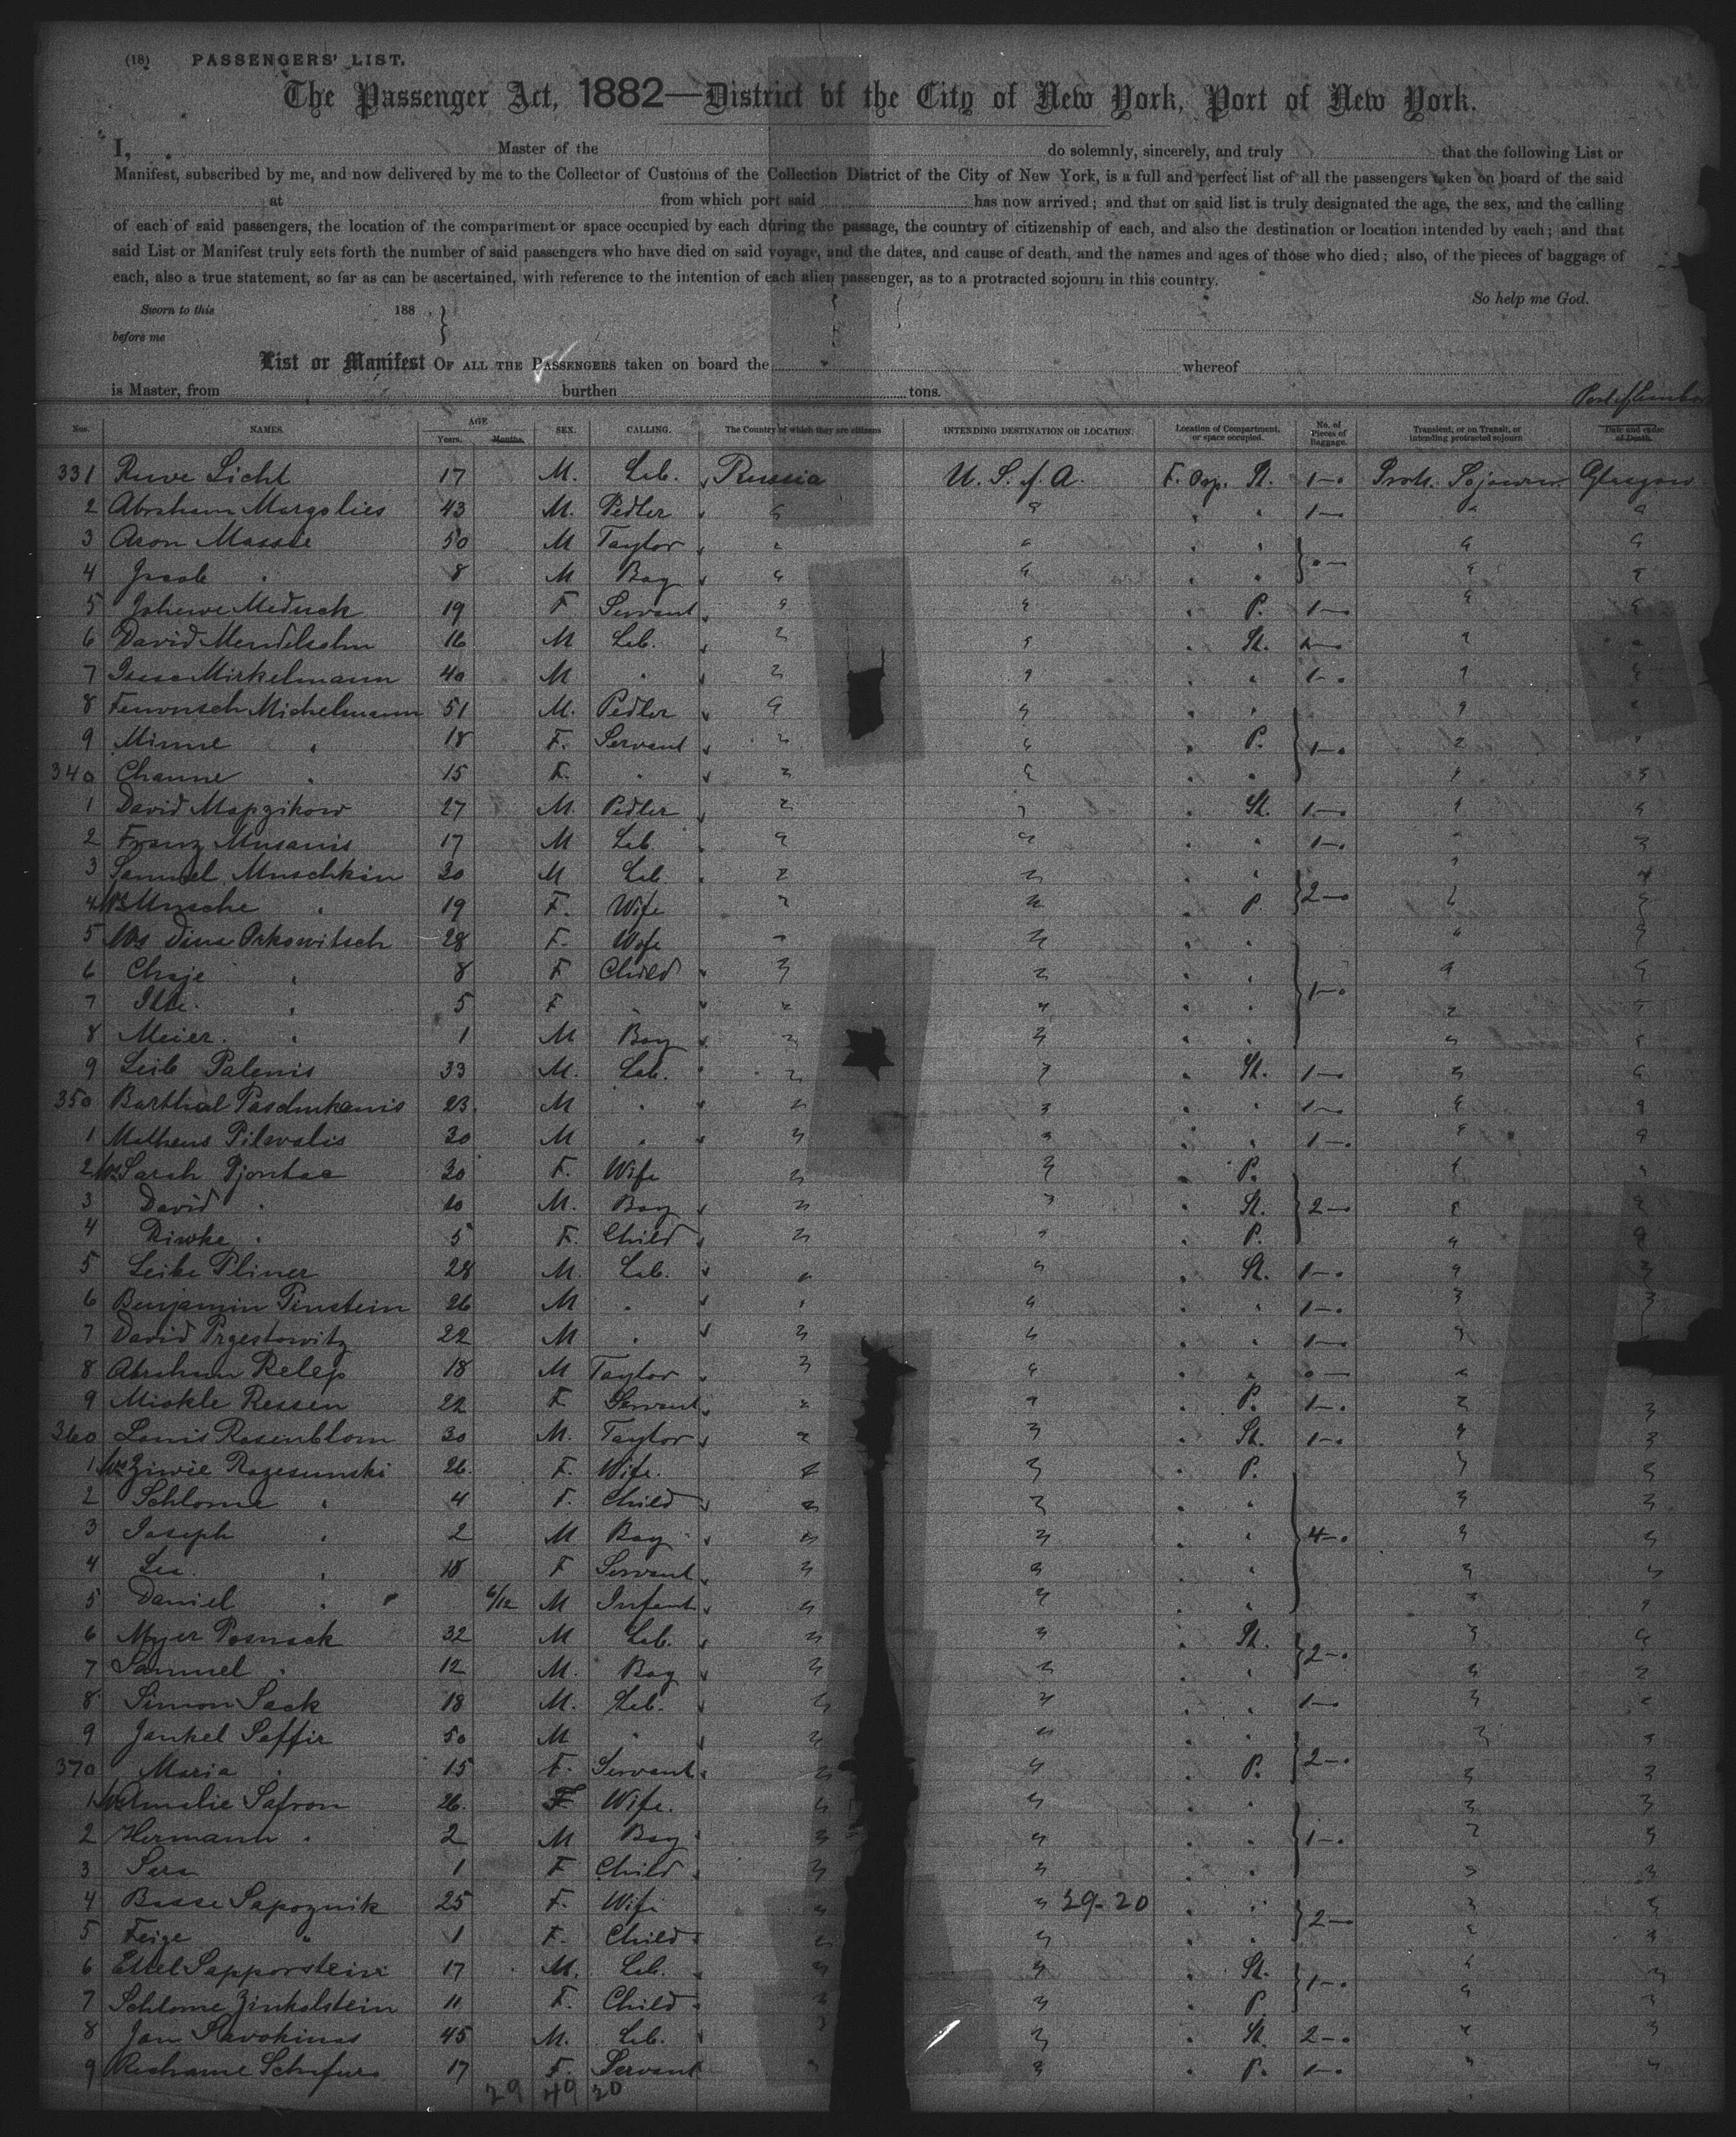 (18) PASSENGERS' LIST.
The Passenger Act, 1882—District of the City of New York, Port of New York.
I, Master of the do solemnly, sincerely, and truly that the following List or
Manifest, subscribed by me, and now delivered by me to the Collector of Customs of the Collection District of the City of New York, is a full and perfect list of all the passengers taken on board of the said
at from which port said has now arrived; and that on said list is truly designated the age, the sex, and the calling
of each of said passengers, the location of the compartment or space occupied by each during the passage, the country of citizenship of each, and also the destination or location intended by each; and that
said List or Manifest truly sets forth the number of said passengers who have died on said voyage, and the dates, and cause of death, and the names and ages of those who died; also, of the pieces of baggage of
each, also a true statement, so far as can be ascertained, with reference to the intention of each alien passenger, as to a protracted sojourn in this country.
So help me God.
Sworn to this 188
before me
List or Manifest OF ALL THE PASSENGERS taken on board the whereof
is Master, from burthen tons.
Nos. NAMES. AGE Years. Months. SEX. CALLING. The Country of which they are citizens INTENDING DESTINATION OR LOCATION. Location of Compartment, or space occupied. No. of Pieces of Baggage. Transient, or on Transit, or intending protracted sojourn Date and cause of Death.
331 Ruve Licht 17 M. Lab. Russia U. S. of A. F. Orp. St. 1 Prot. Sojourn Glasgow
2 Abraham Margolies 43 M. Pedler " " 1 " "
3 Aron Massie 50 M Taylor " " " "
4 " 8 M Boy " " " "
5 Meduck 19 F Servant " " P. 1 " "
6 David Mendelsohn 16 M Lab. " " St. " "
7 Mirkelmann 40 M " " " " 1 " "
8 Michelmann 51 M. Pedler " " " " "
9 Minne " 18 F. Servant " " P. 1 " "
340 Channe " 15 F. " " " " " "
1 David Mapzikow 27 M. Pedler " " St. 1 " "
2 Franz Musanis 17 M Lab. " " " 1 " "
3 Samuel Muschkin 30 M Lab. " " " 2 " "
4 Mrs Musche " 19 F. Wife " " P. " "
5 Mrs Dina Orkowitsch 28 F. Wife " " " " "
6 Chaje " 8 F Child " " " 1 " "
7 Itte " 5 F " " " " " "
8 Meier " 1 M Boy " " " " "
9 Leib Palenis 33 M. Lab. " " St. 1 " "
350 Barthal Paschukanis 23 M " " " " 1 " "
1 Matheus Pilevalis 30 M " " " " 1 " "
2 Mrs Sarah Pjontac 30 F. Wife " " P. " "
3 David " 10 M. Boy " " St. 2 " "
4 Riwke " 5 F. Child " " P. " "
5 Leibe Pliner 28 M. Lab. " " St. 1 " "
6 Benjamin Pinstein 26 M " " " " 1 " "
7 David Przestowitz 22 M " " " " 1 " "
8 Abraham Relep 18 M Taylor " " " " "
9 Miokle Ressen 22 F Servant " " P. 1 " "
360 Louis Rosenblom 30 M. Taylor " " St. 1 " "
1 Mrs Ziwie Rozesunski 26 F. Wife. " " P. " "
2 Schlome " 4 F. Child " " " " "
3 Joseph " 2 M Boy " " " 4 " "
4 Lea " 18 F Servant " " " " "
5 Daniel " 6/12 M Infant " " " "
6 Myer Posnack 32 M Lab. " " St. 2 " "
7 Samuel " 12 M. Boy " " " " "
8 Simon Sack 18 M. Lab. " " " 1 " "
9 Jankel Saffir 50 M " " " " " "
370 Maria " 15 F. Servant " " P. 2 " "
1 Mrs Amalie Safron 26. F Wife. " " " " "
2 Hermann " 2 M Boy " " " 1 " "
3 Sara 1 F Child " " " " "
4 Basse Sapoznik 25 F. Wife " " 29-20 " 2 " "
5 Feige " 1 F. Child " " " " "
6 Ettel Sapporstein 17 M. Lab. " " St. 1 " "
7 Schlome Zinkelstein 11 F. Child " " P. " "
8 Jan Savokinas 45 M. Lab. " " St. 2 " "
9 17 F. Servant " " P. 1 " "
29 49 20